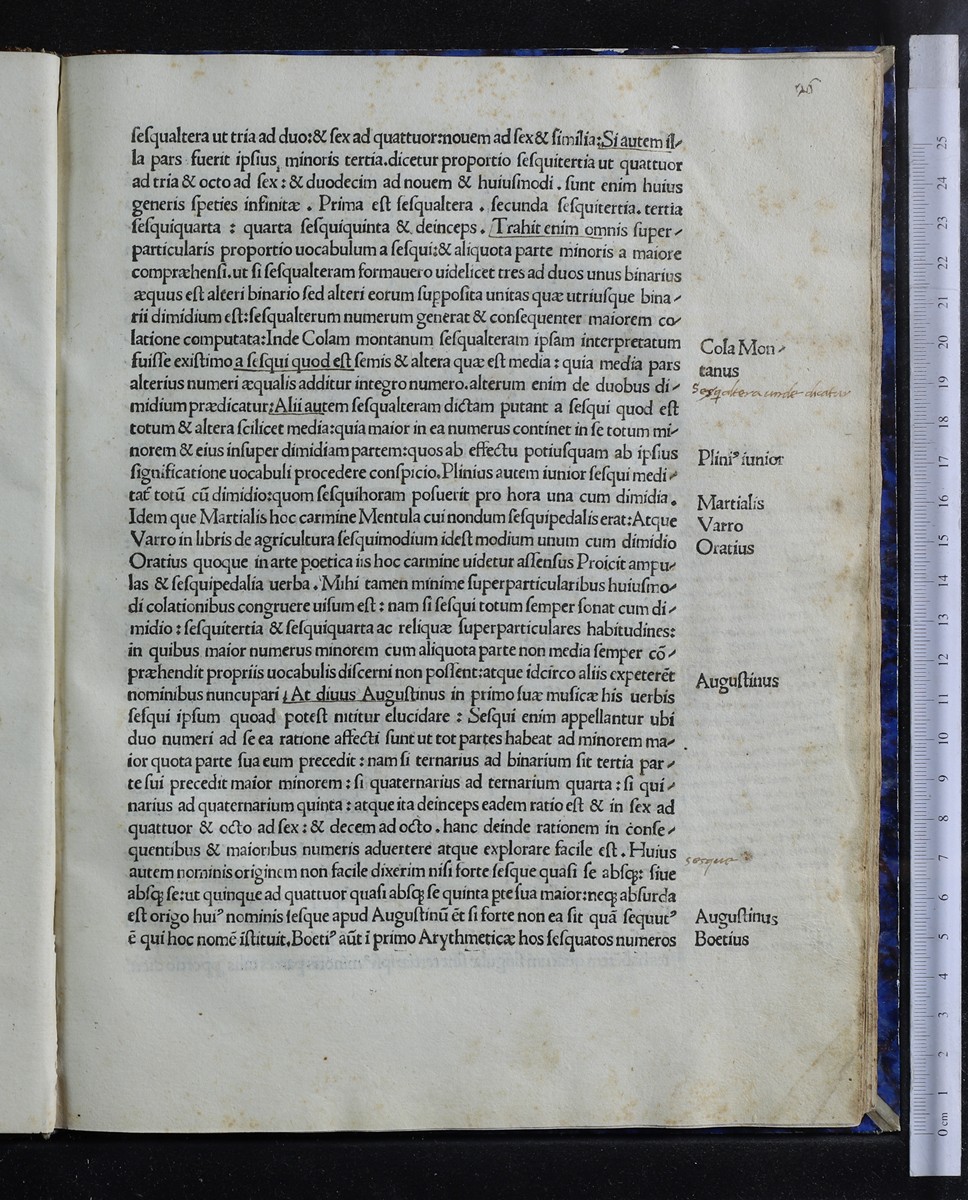 26
ſeſqualtera ut tria ad duo:& ſex ad quattuor:nouem ad ſex & ſimilia:Si autem il⸗
la pars fuerit ipſius minoris tertia.dicetur proportio ſeſquitertia ut quattuor
ad tria & octo ad ſex : & duodecim ad nouem & huiuſmodi . ſunt enim huius
generis ſpeties infinitæ . Prima eſt ſeſqualtera . ſecunda ſeſquitertia. tertia
ſeſquiquarta : quarta ſeſquiquinta & deinceps . Trahit enim omnis ſuper⸗
particularis proportio uocabulum a ſeſqui:& aliquota parte minoris a maiore
compræhenſi.ut ſi ſeſqualteram formauero uidelicet tres ad duos unus binarius
æquus eſt alteri binario ſed alteri eorum ſuppoſita unitas quæ utriuſque bina⸗
rii dimidium eſt:ſeſqualterum numerum generat & conſequenter maiorem co⸗
latione computata:Inde Colam montanum ſeſqualteram ipſam interpretatum
fuiſſe exiſtimo a ſeſqui quod eſt ſemis & altera quæ eſt media : quia media pars
alterius numeri æqualis additur integro numero.alterum enim de duobus di⸗
midium prædicatur:Alii autem ſeſqualteram dictam putant a ſeſqui quod eſt
totum & altera ſcilicet media:quia maior in ea numerus continet in ſe totum mi⸗
norem & eius inſuper dimidiam partem:quos ab effectu potiuſquam ab ipſius
ſignificatione uocabuli procedere conſpicio.Plinius autem iunior ſeſqui medi⸗
tat̄ totū cū dimidio:quom ſeſquihoram poſuerit pro hora una cum dimidia .
Idem que Martialis hoc carmine Mentula cui nondum ſeſquipedalis erat:Atque
Varro in libris de agricultura ſeſquimodium ideſt modium unum cum dimidio
Oratius quoque in arte poetica iis hoc carmine uidetur aſſenſus Proicit ampu⸗
las & ſeſquipedalia uerba . Mihi tamen minime ſuperparticularibus huiuſmo⸗
di colationibus congruere uiſum eſt : nam ſi ſeſqui totum ſemper ſonat cum di⸗
midio : ſeſquitertia & ſeſquiquarta ac reliquæ ſuperparticulares habitudines:
in quibus maior numerus minorem cum aliquota parte non media ſemper cō⸗
præhendit propriis uocabulis diſcerni non poſſent:atque idcirco aliis expeterēt
nominibus nuncupari ; At diuus Auguſtinus in primo ſuæ muſicæ his uerbis
ſeſqui ipſum quoad poteſt nititur elucidare : Seſqui enim appellantur ubi
duo numeri ad ſe ea ratione affecti ſunt ut tot partes habeat ad minorem ma⸗
ior quota parte ſua eum precedit : nam ſi ternarius ad binarium ſit tertia par⸗
te ſui precedit maior minorem : ſi quaternarius ad ternarium quarta : ſi qui⸗
narius ad quaternarium quinta : atque ita deinceps eadem ratio eſt & in ſex ad
quattuor & octo ad ſex : & decem ad octo . hanc deinde rationem in conſe⸗
quentibus & maioribus numeris aduertere atque explorare facile eſt . Huius
autem nominis originem non facile dixerim niſi forte ſeſque quaſi ſe abſqꝫ: ſiue
abſqꝫ ſe:ut quinque ad quattuor quaſi abſqꝫ ſe quinta ꝑte ſua maior:neqꝫ abſurda
eſt origo huiꝰ nominis ſeſque apud Auguſtinū ēt ſi forte non ea ſit quā ſequutꝰ
ē qui hoc nomē iſtituit.Boetiꝰ aūt ī primo Arythmeticæ hos ſeſquatos numeros
Cola Mon⸗
tanus
Sesqaltera unde dicatur
Pliniꝰ iunior
Martialis
Varro
Oratius
Auguſtinus
sesque
Auguſtinus
Boetius
0 cm 1 2 3 4 5 6 7 8 9 10 11 12 13 14 15 16 17 18 19 20 21 22 23 24 25